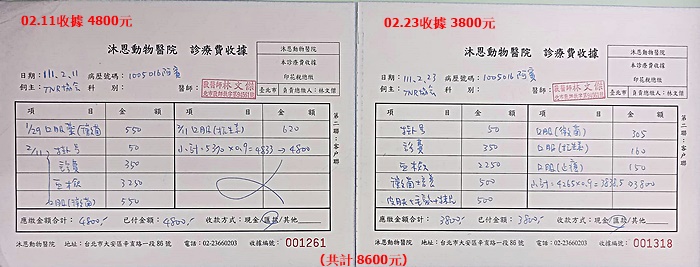 02.11收據 4800元
沐恩動物醫院 診療費收據
沐恩動物醫院
本診療費收據
印花稅總繳
臺北市 負責總繳人:林文傑
日期:111.2.11 病歷號碼:1005016阿寶
飼主:TNR協會 科別: 醫師:
獸醫師林文傑
項目 金額 項目 金額
1/29 口服藥(黴菌) 550 2/11口服(抗生素) 620
2/11 掛号 50 小計=5370×0.9=4833→4800
診費 350
血檢 3250
口服(黴菌) 550
應繳金額合計:4800.- 已付金額:4800.- 收款方式:現金/匯款/其他
第二聯:客戶聯
沐恩動物醫院 地址:台北市大安區辛亥路一段86號 電話:02-23660203 收據編號:001261
02.23收據 3800元
沐恩動物醫院 診療費收據
沐恩動物醫院
本診療費收據
印花稅總繳
臺北市 負責總繳人:林文傑
日期:111.2.23 病歷號碼:1005016阿寶
飼主:TNR協會 科別: 醫師:
獸醫師林文傑
項目 金額 項目 金額
掛号 50 口服(黴菌) 305
診費 350 口服(抗生素) 160
血檢 2250 口服(止癢) 150
黴菌培養 500 小計=4265×0.9=3838.5→3800
500
應繳金額合計:3800.- 已付金額:3800.- 收款方式:現金/匯款/其他
第二聯:客戶聯
沐恩動物醫院 地址:台北市大安區辛亥路一段86號 電話:02-23660203 收據編號:001318
(共計 8600元)